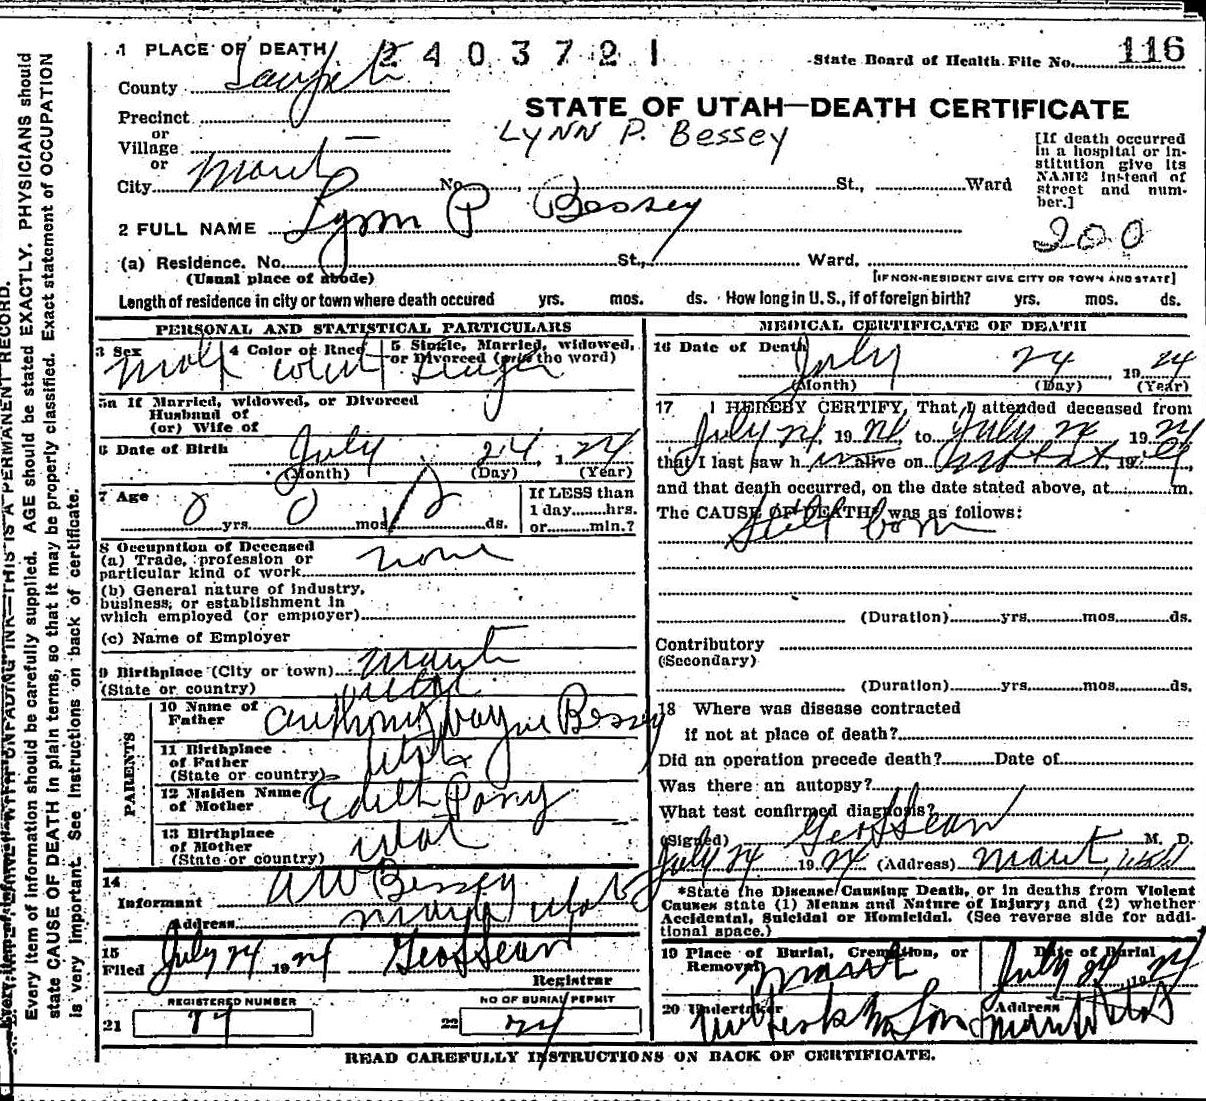 1 PLACE OF DEATH 2403721 State Board of Health File No. 116
County Sanpete
STATE OF UTAH—DEATH CERTIFICATE
Precinct
or
Village —
or
LYNN P. Bessey
[If death occurred in a hospital or in-
stitution give its
NAME instead of
street and num-
ber.]
City Manti No. St., Ward
2 FULL NAME Lynn P Bessey
200
(a) Residence. No. St., Ward.
(Usual place of abode) [IF NON-RESIDENT GIVE CITY OR TOWN AND STATE]
Length of residence in city or town where death occured yrs. mos. ds. How long in U. S., if of foreign birth? yrs. mos. ds.
PERSONAL AND STATISTICAL PARTICULARS
3 Sex 4 Color or Race 5 Single, Married, widowed,
or Divorced (write the word)
Male White Single
5a If Married, widowed, or Divorced
Husband of
(or) Wife of
6 Date of Birth July 24, 1 24
(Month) (Day) (Year)
7 Age 0 yrs. 0 mos. 0 ds.
If LESS than
1 day hrs.
or min.?
8 Occupation of Deceased
(a) Trade, profession or
particular kind of work none
(b) General nature of industry,
business, or establishment in
which employed (or employer)
(c) Name of Employer
9 Birthplace (City or town) Manti
(State or country) Utah
PARENTS
10 Name of
Father Anthony Wayne Bessey
11 Birthplace
of Father
(State or country) Utah
12 Maiden Name
of Mother Edith
13 Birthplace
of Mother
(State or country) Utah
14
Informant A W Bessey
Address Manti Utah
15
Filed July 24 1924
Registrar
REGISTERED NUMBER NO OF BURIAL PERMIT
21 22 24
MEDICAL CERTIFICATE OF DEATH
16 Date of Death July 24, 1924
(Month) (Day) (Year)
17 I HEREBY CERTIFY, That I attended deceased from
July 24, 1924, to July 24, 1924
that I last saw h alive on 19
and that death occurred, on the date stated above, at m.
The CAUSE OF DEATH* was as follows:
Still born
(Duration) yrs. mos. ds.
Contributory
(Secondary)
(Duration) yrs. mos. ds.
18 Where was disease contracted
if not at place of death?
Did an operation precede death? Date of
Was there an autopsy?
What test confirmed diagnosis?
(Signed) M. D.
July 24 1924 (Address) Manti, Utah
*State the Disease Causing Death, or in deaths from Violent
Causes state (1) Means and Nature of Injury; and (2) whether
Accidental, Suicidal or Homicidal. (See reverse side for addi-
tional space.)
19 Place of Burial, Cremation, or
Removal Manti
Date of Burial
July 24 1924
20 Undertaker
Address
Manti Utah
READ CAREFULLY INSTRUCTIONS ON BACK OF CERTIFICATE.
THIS IS A PERMANENT RECORD.
Every item of information should be carefully supplied. AGE should be stated EXACTLY. PHYSICIANS should
state CAUSE OF DEATH in plain terms, so that it may be properly classified. Exact statement of OCCUPATION
is very important. See instructions on back of certificate.